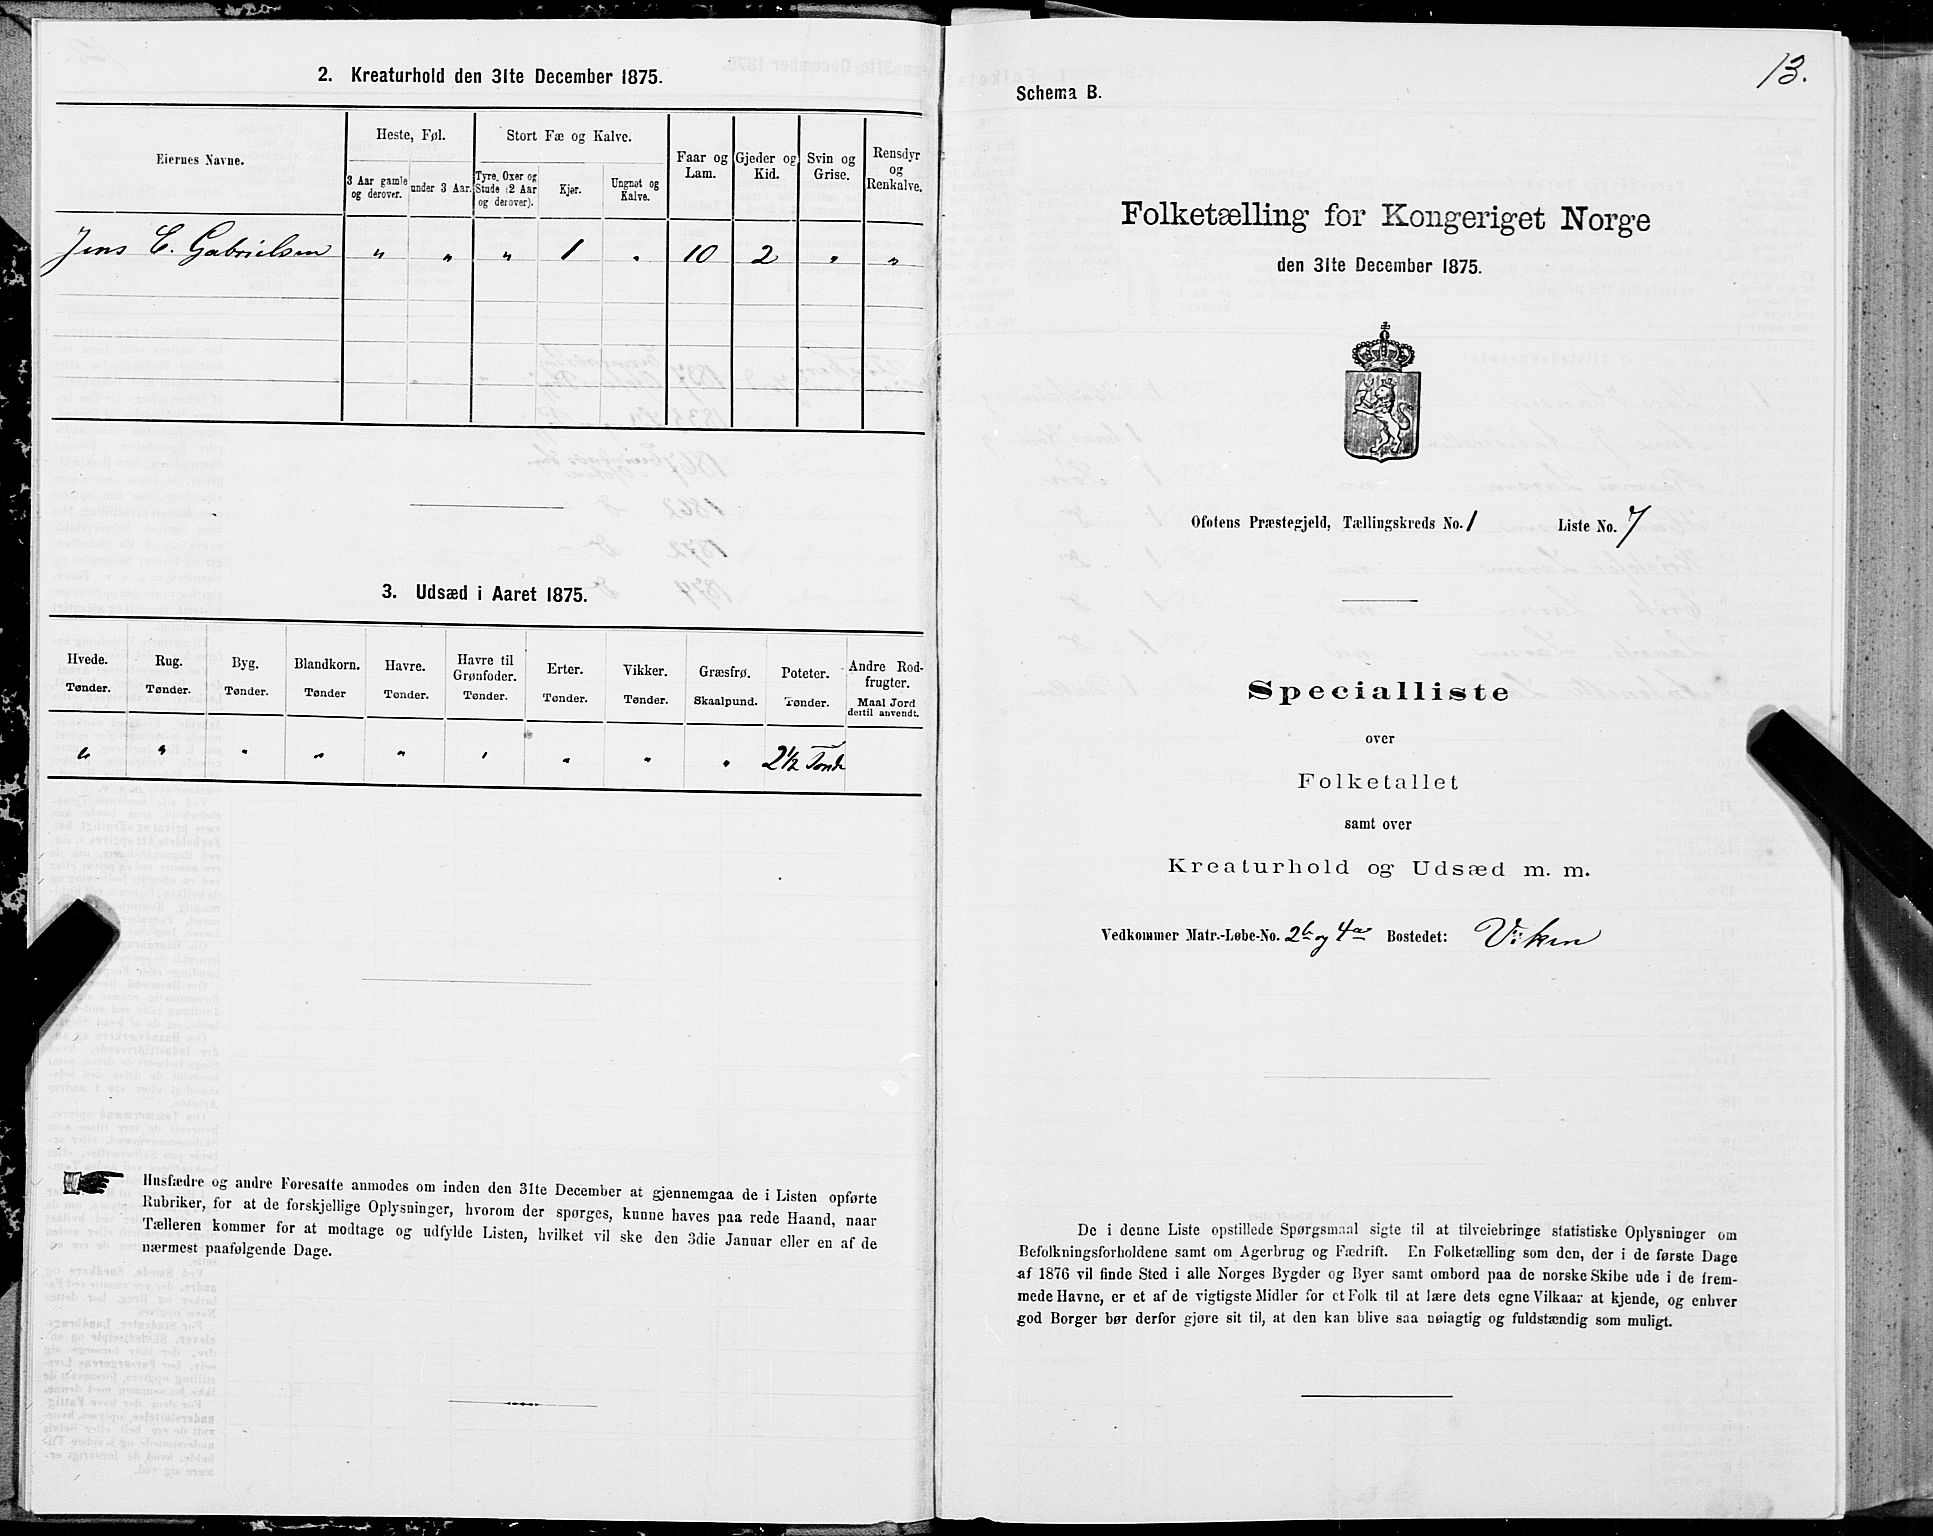 2. Kreaturhold den 31te December 1875.
Eiernes Navne.
Heste, Føl.
Stort Fæ og Kalve.
Faar og Lam.
Gjeder og Kid.
Svin og Grise.
Rensdyr og Renkalve.
3 Aar gamle og derover.
under 3 Aar.
Tyre, Oxer og Stude (2 Aar og derover).
Kjør.
Ungnøt og Kalve.
Jens C. Gabrielsen " " " 1 " 10 2 " "
3. Udsæd i Aaret 1875.
Hvede. Rug. Byg. Blandkorn. Havre. Havre til Grønfoder. Erter. Vikker. Græsfrø. Poteter. Andre Rodfrugter.
Tønder. Tønder. Tønder. Tønder Tønder. Tønder. Tønder. Tønder. Skaalpund. Tønder. Maal Jord dertil anvendt.
" " " " " " " " " 2½ Tønde
Husfædre og andre Foresatte anmodes om inden den 31te December at gjennemgaa de i Listen opførte
Rubriker, for at de forskjellige Oplysninger, hvorom der spørges, kunne haves paa rede Haand, naar
Tælleren kommer for at modtage og udfylde Listen, hvilket vil ske den 3die Januar eller en af de
nærmest paafølgende Dage.
13.
Schema B.
Folketælling for Kongeriget Norge
den 31te December 1875.
Ofotens Præstegjeld, Tællingskreds No. 1 Liste No. 7
Specialliste
over
Folketallet
samt over
Kreaturhold og Udsæd m. m.
Vedkommer Matr.-Løbe-No. 2b og 4a Bostedet: Viken
De i denne Liste opstillede Spørgsmaal sigte til at tilveiebringe statistiske Oplysninger om
Befolkningsforholdene samt om Agerbrug og Fædrift. En Folketælling som den, der i de første Dage
af 1876 vil finde Sted i alle Norges Bygder og Byer samt ombord paa de norske Skibe ude i de frem-
mede Havne, er et af de vigtigste Midler for et Folk til at lære dets egne Vilkaar at kjende, og enhver
god Borger bør derfor gjøre sit til, at den kan blive saa nøiagtig og fuldstændig som muligt.